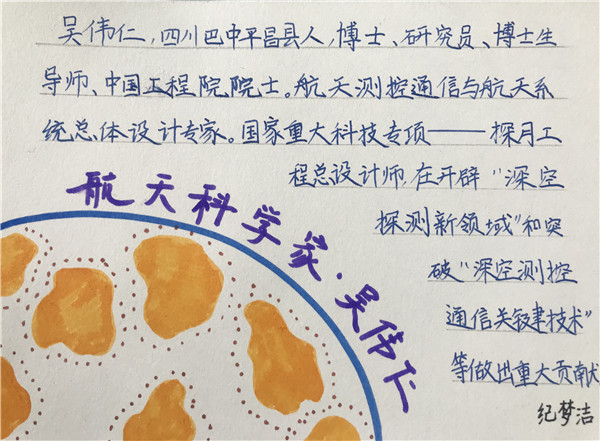 吴伟仁,四川巴中平昌县人,博士、研究员、博士生
导师、中国工程院院士。航天测控通信与航天系
统总体设计专家。国家重大科技专项——探月工
程总设计师,在开辟“深空
探测新领域”和突
破“深空测控
通信关键技术”
等做出重大贡献
纪梦洁
航天科学家·吴伟仁